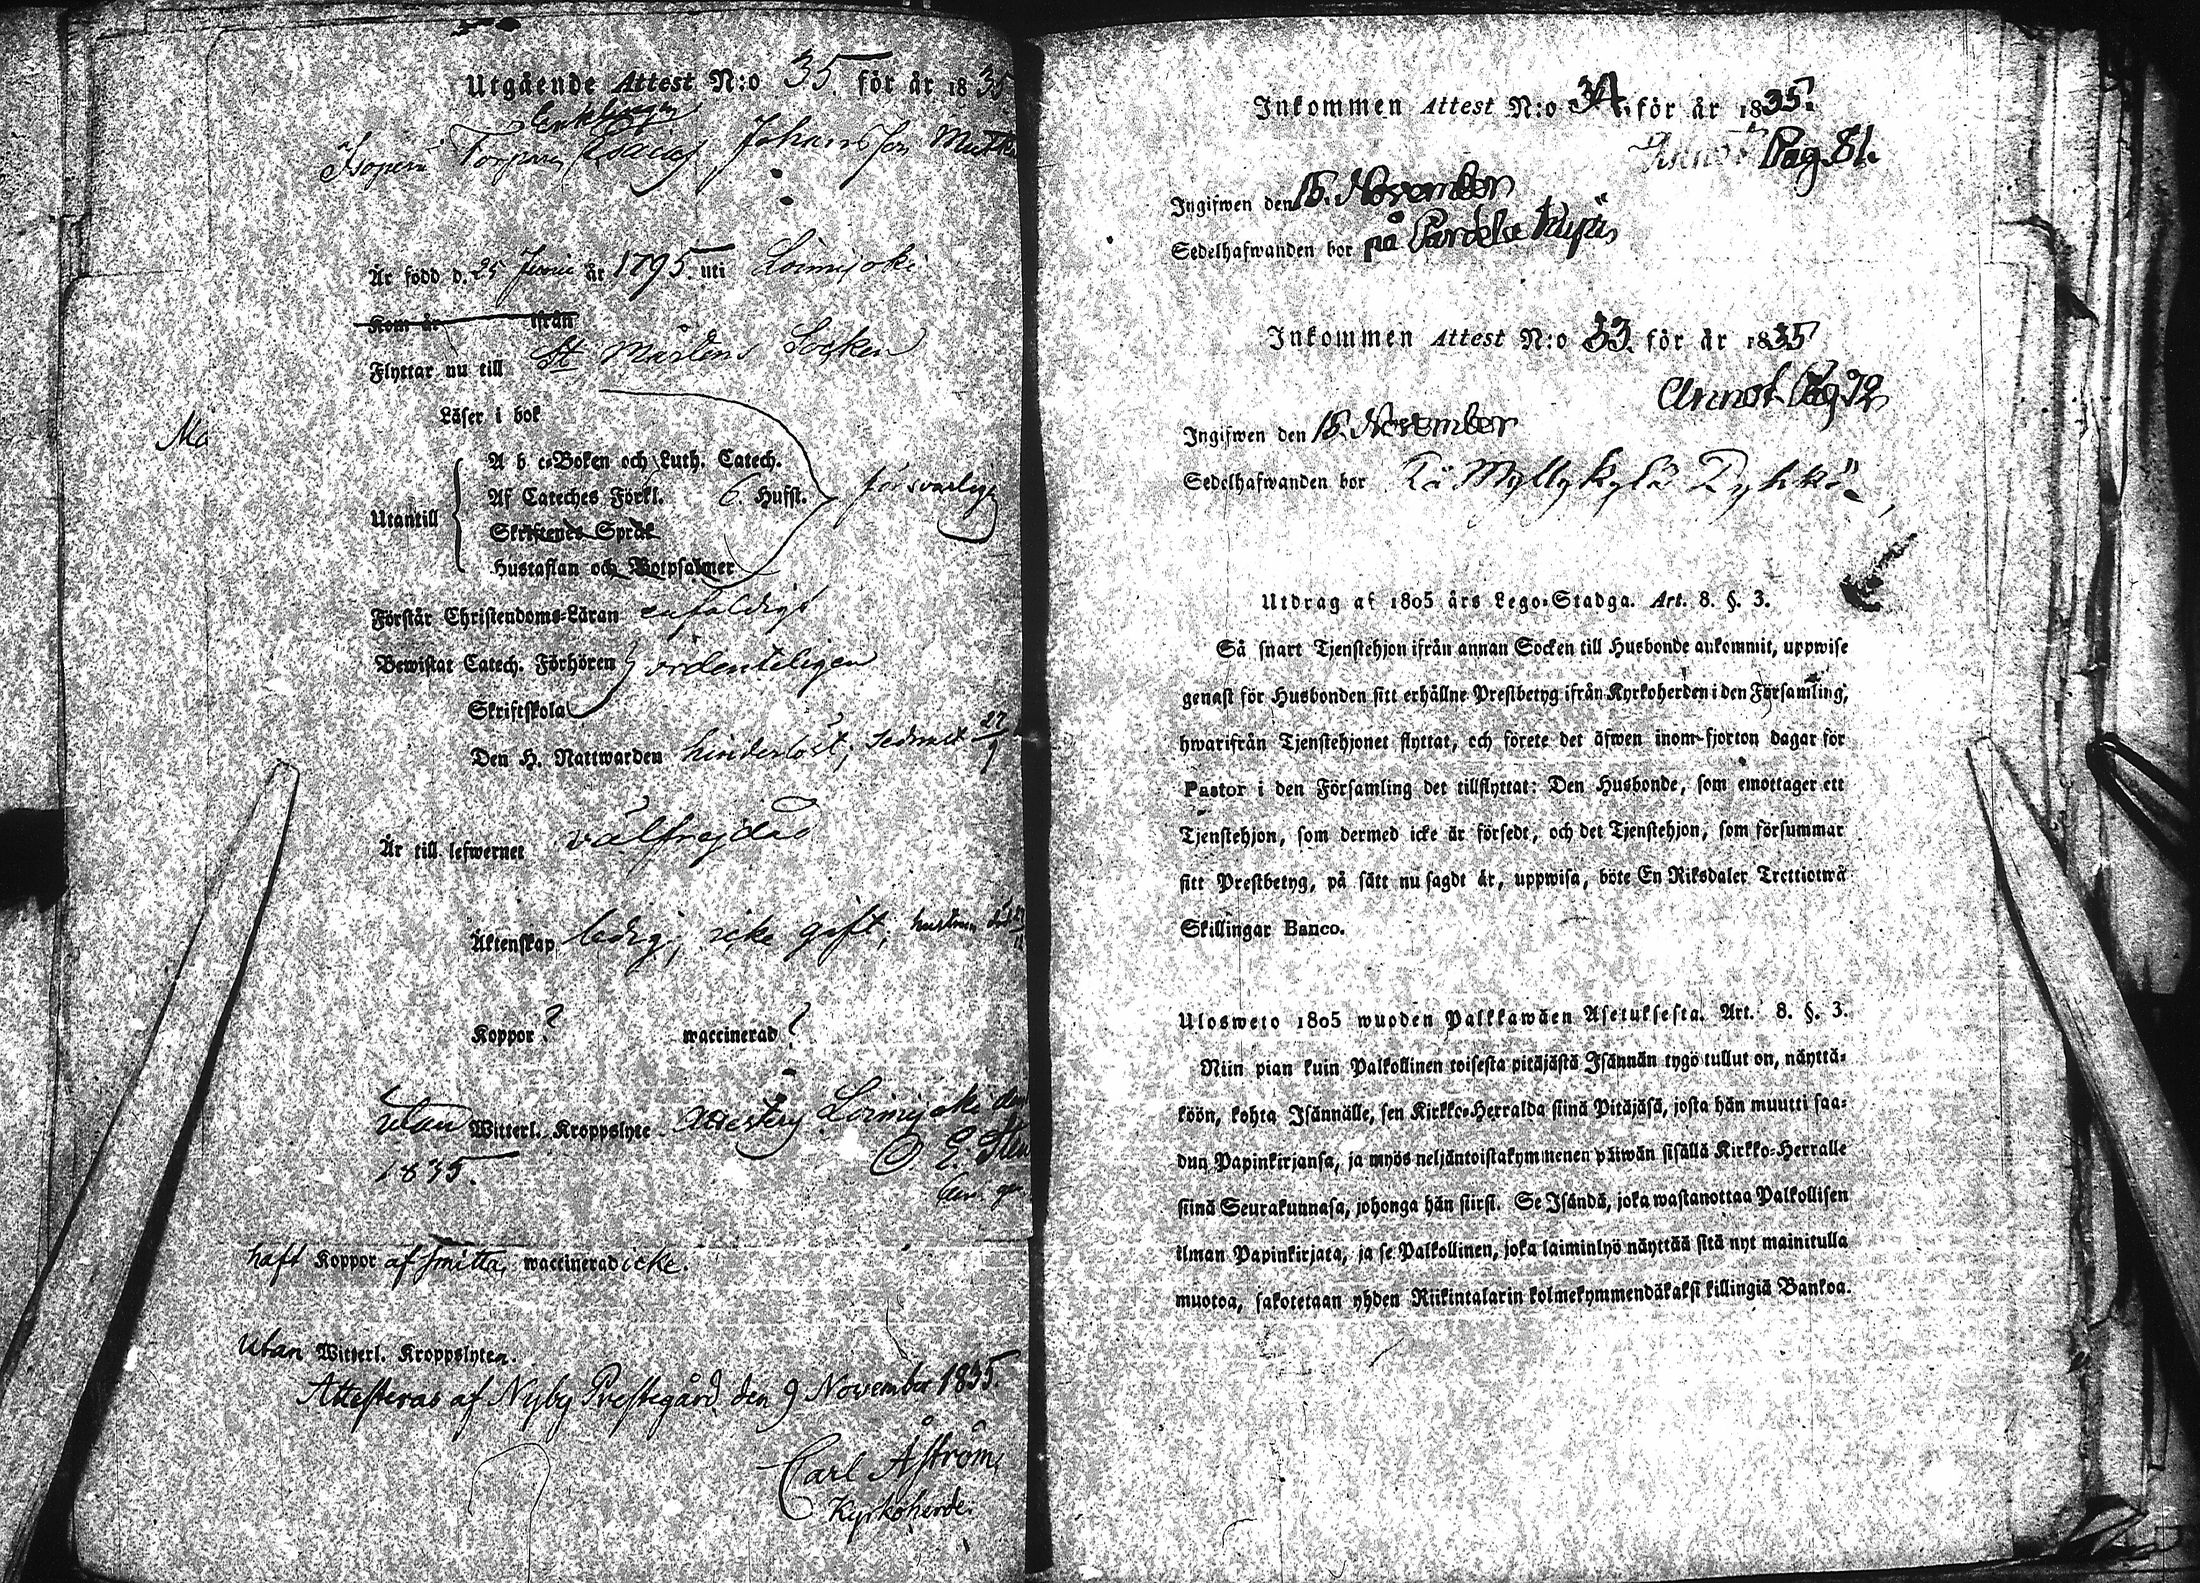 Utgående Attest N:o 35. för år 1835
Enklingen
Torparen Esaias Johansson
Är född d. 25 Junii år 1795. uti Loimijoki
Kom år ifrån
Flyttar nu till St Mårtens Socken
Läser i bok
A b c-Boken och Luth. Catech.
Af Cateches Förkl. 6. Hufst. försvarligen
Utantill
Skriftenes Språk
Hustaflan och Botpsalmer
Förstår Christendoms-Läran enfaldigt
Bewistat Catech. Förhören ordenteligen
Skriftskola
Den H. Nattwarden hinderlöst, sednast 27
Är till lefwernet välfrejdad
Äktenskap ledig, icke gift, hustrun
Koppor? waccinerad?
utan Witterl. Kroppslyte Loimijoki den
1835.
haft Koppor af smitta, waccinerad icke.
Utan Witterl. Kroppslyten.
Attesteras af Nyby Prestegård den 9 November 1835.
Carl Åström,
Kyrkoherde.
Inkommen Attest N:o 34. för år 1835.
Annot Pag. 81.
Ingifwen den 15. November
Sedelhafwanden bor på
Inkommen Attest N:o 33. för år 1835
Annot. Pag 72
Ingifwen den 15. November
Sedelhafwanden bor På Myllykylä
Utdrag af 1805 års Lego-Stadga. Art. 8. §. 3.
Så snart Tjenstehjon ifrån annan Socken till Husbonde ankommit, uppwise
genast för Husbonden sitt erhållne Prestbetyg ifrån Kyrkoherden i den Församling,
hwarifrån Tjenstehjonet flyttat, och förete det äfwen inom fjorton dagar för
Pastor i den Församling det tillflyttat: Den Husbonde, som emottager ett
Tjenstehjon, som dermed icke är försedt, och det Tjenstehjon, som försummar
sitt Prestbetyg, på sätt nu sagdt är, uppwisa, böte En Riksdaler Trettiotwå
Skillingar Banco.
Ulosweto 1805 wuoden Palkkawäen Asetuksesta. Art. 8. §. 3.
Niin pian kuin Palkollinen toisesta pitäjästä Isännän tygö tullut on, näyttä-
köön, kohta Isännälle, sen Kirkko-Herralda siinä Pitäjäsä, josta hän muutti saa-
dun Papinkirjansa, ja myös neljäntoistakymmenen päiwän sisällä Kirkko-Herralle
siinä Seurakunnasa, johonga hän siirsi. Se Isändä, joka wastanottaa Palkollisen
ilman Papinkirjata, ja se Palkollinen, joka laiminlyö näyttää sitä nyt mainitulla
muotoa, sakotetaan yhden Riikintalarin kolmekymmendäkaksi killingiä Bankoa.